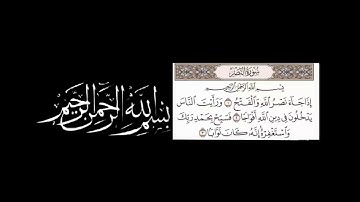 بِسْمِ اللَّهِ الرَّحْمَنِ الرَّحِيمِ
سُورَةُ النَّصْرِ
بِسْمِ اللَّهِ الرَّحْمَٰنِ الرَّحِيمِ
إِذَا جَاءَ نَصْرُ اللَّهِ وَالْفَتْحُ ۝١ وَرَأَيْتَ النَّاسَ
يَدْخُلُونَ فِي دِينِ اللَّهِ أَفْوَاجًا ۝٢ فَسَبِّحْ بِحَمْدِ رَبِّكَ
وَاسْتَغْفِرْهُ إِنَّهُ كَانَ تَوَّابًا ۝٣